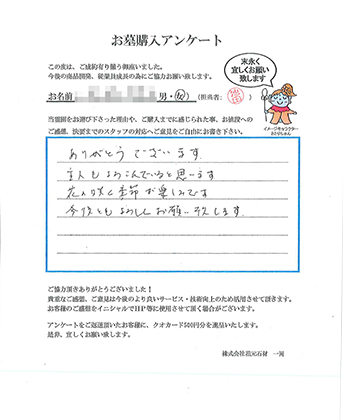 お墓購入アンケート
この度は、ご成約有り難う御座いました。
今後の商品開発、従業員成長の為にご協力お願い致します。
末永く
宜しくお願い
致します
お名前
男・女
(担当者:
イメージキャラクター
当霊園をお選び下さった理由や、ご購入までに感じられた事、お値段への
ご感想、弊園までのスタッフの対応へご意見をご自由にお書き下さい。
ありがとうございます。
主人もよろこんでいると思います
花の咲く季節が楽しみです
今後ともよろしくお願い致します。
ご協力頂きありがとうございました!
貴重なご感想、ご意見は今後のより良いサービス・技術向上のため活用させて頂きます。
お客様のご感想をイニシャルでHP等に使用させて頂く場合がございます。
アンケートをご返送頂いたお客様に、クオカード500円分を進呈いたします。
是非、宜しくお願い致します。
株式会社 石材 一同